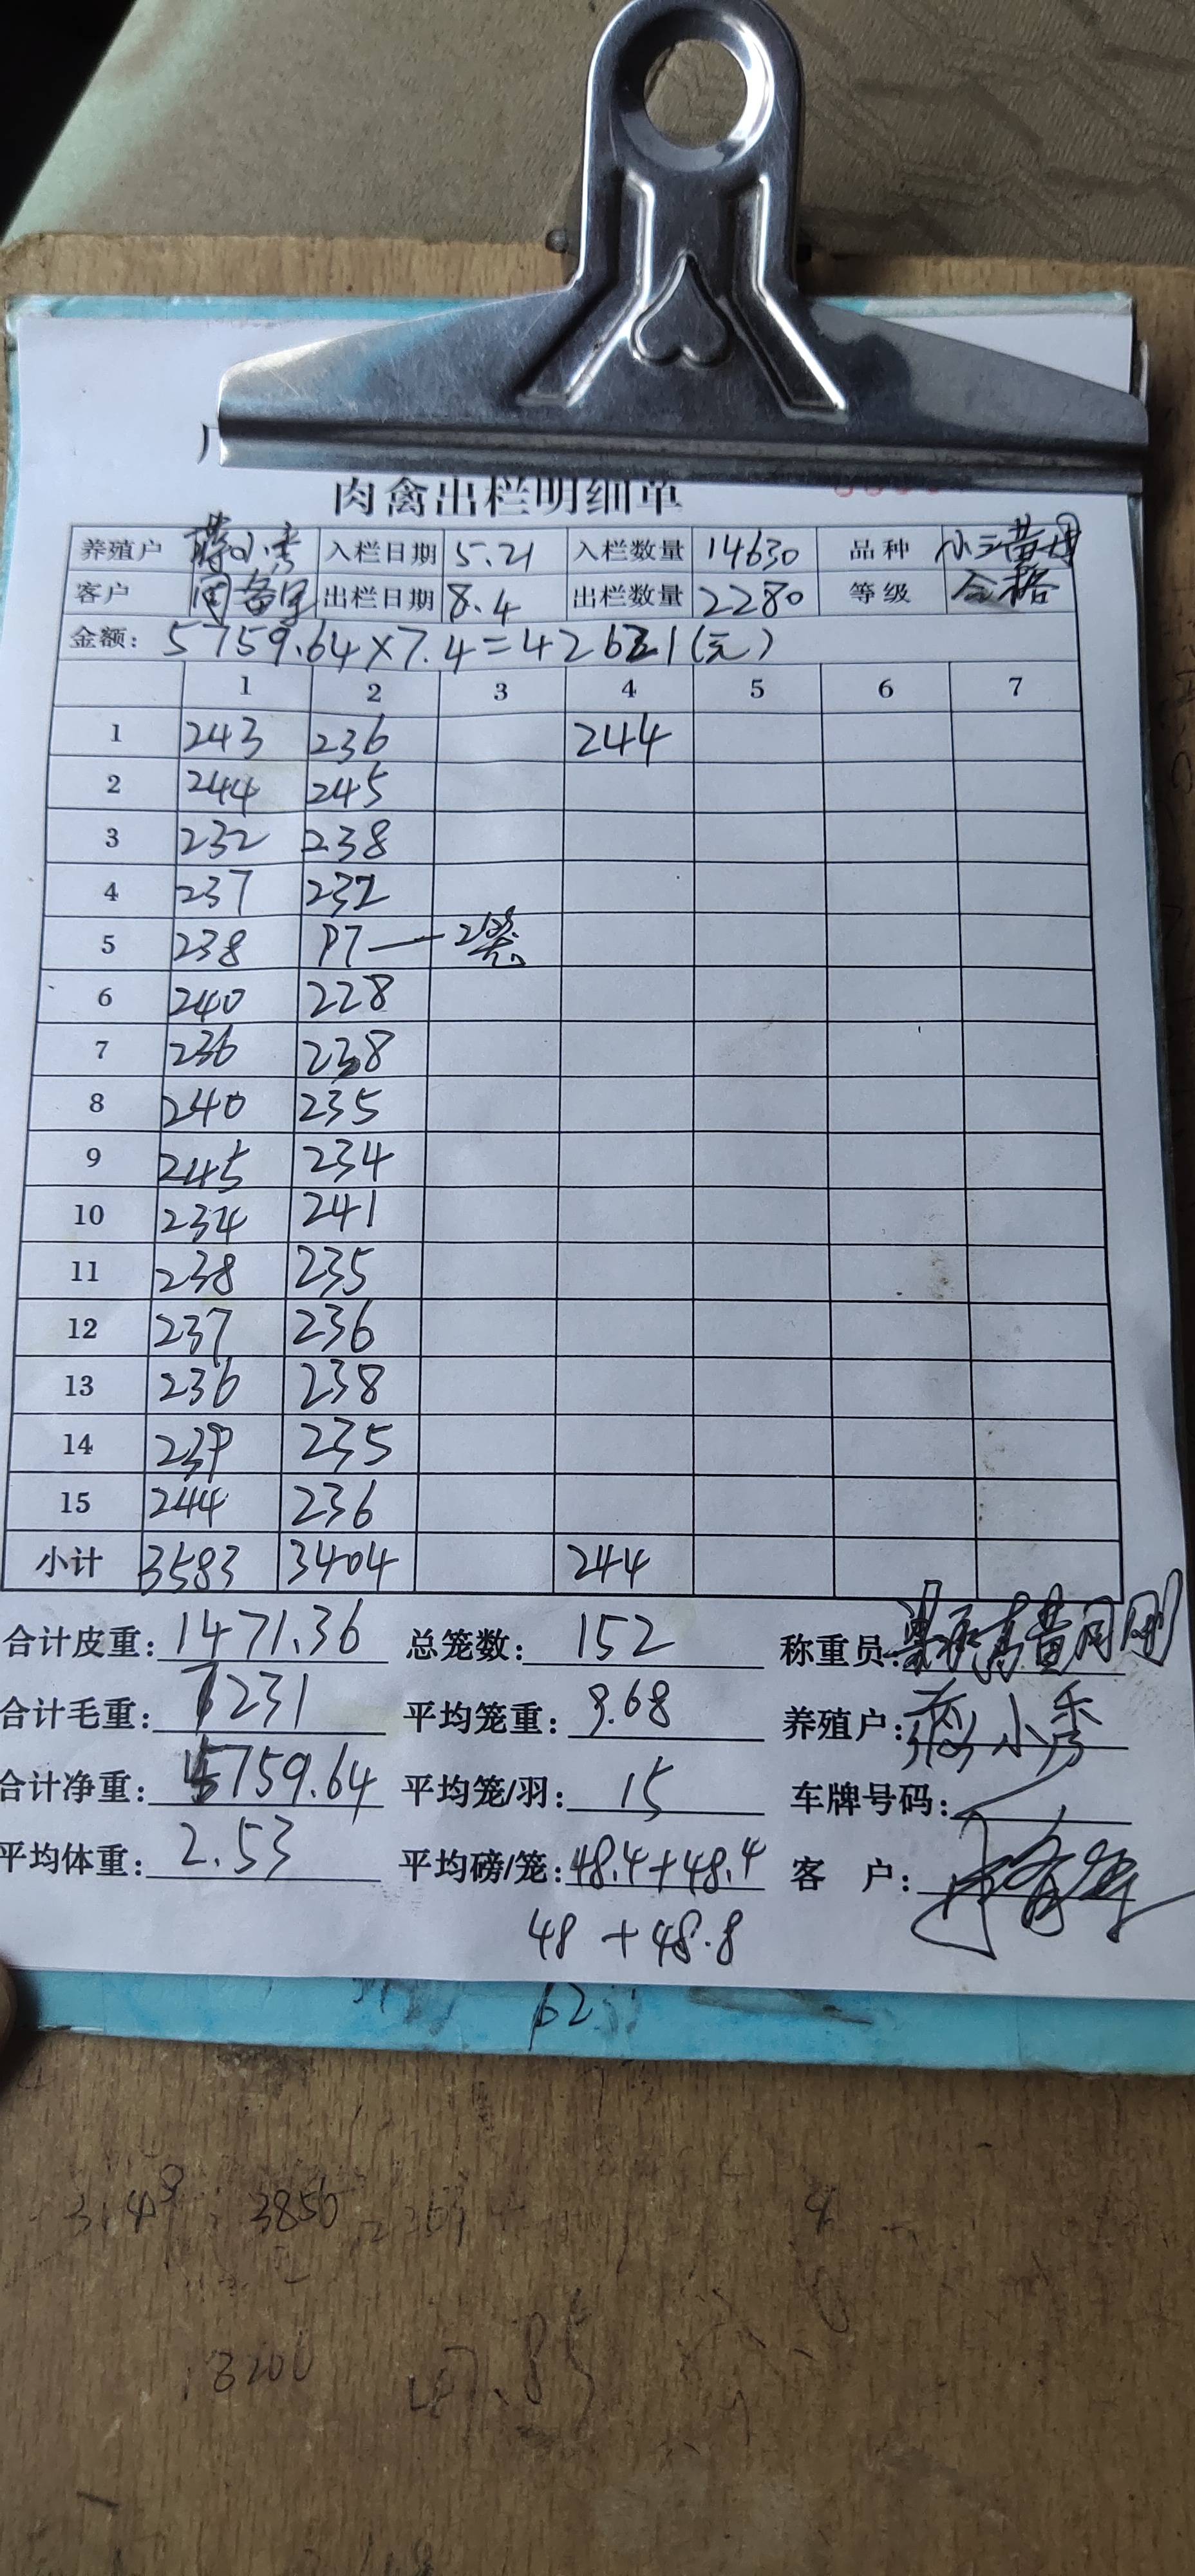 肉禽出栏明细单
养殖户 蒋小秀 入栏日期 5.21 入栏数量 14630 品种 小三黄母
客户 出栏日期 8.4 出栏数量 2280 等级 合格
金额: 5759.64×7.4=42621(元)
1 2 3 4 5 6 7
1 243 236 244
2 244 245
3 232 238
4 237 232
5 238 97—2笼
6 240 228
7 236 238
8 240 235
9 245 234
10 234 241
11 238 235
12 237 236
13 236 238
14 239 235
15 244 236
小计 3583 3404 244
合计皮重: 1471.36 总笼数: 152 称重员:
合计毛重: 7231 平均笼重: 9.68 养殖户: 蒋小秀
合计净重: 5759.64 平均笼/羽: 15 车牌号码:
平均体重: 2.53 平均磅/笼: 48.4+48.4 客 户:
48+48.8
3850
3200